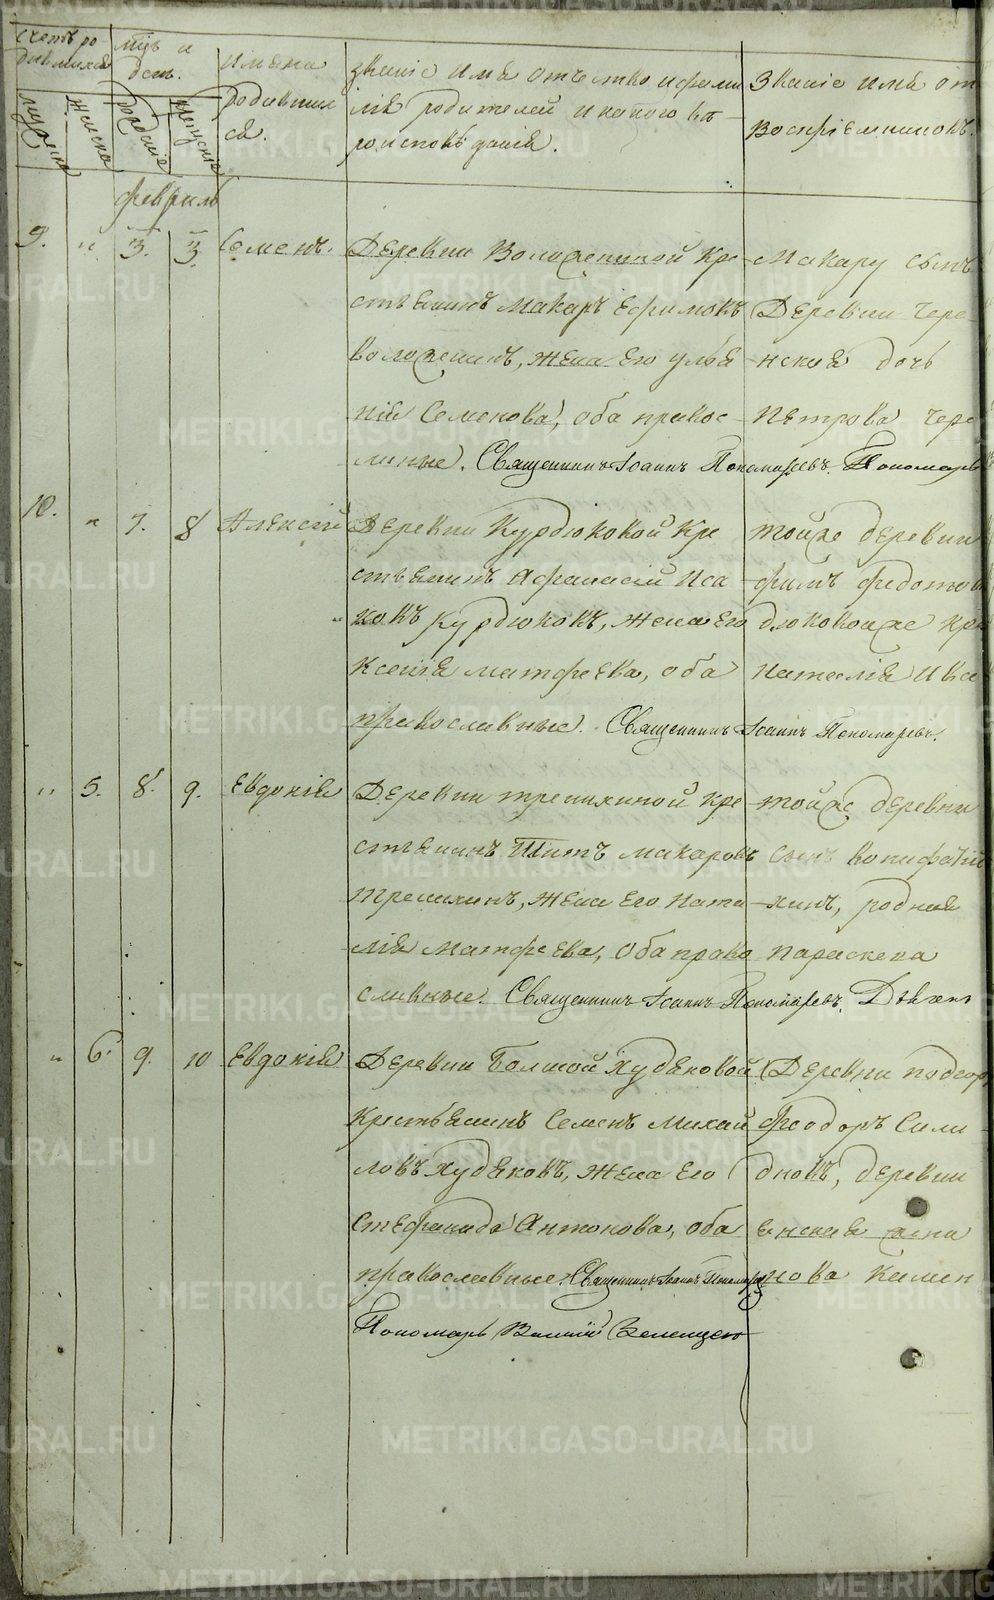 счетъ ро
дившихся
мужеска
женска
мѣсяцъ и
день.
рожденіе
крещеніе
имена
родивших
ся.
званіе имя отчество и фами
лія родителей и какого вѣ
роисповѣданія.
Званіе имя от
воспріемниковъ.
февраль
9. " 3. 3. Семенъ.
Деревни Воложениной Кре
стьянинъ Макаръ Ефимовъ
воложенинъ, жена его улья
нія Семенова, оба правос
лавные. Священникъ Іоаннъ Пономаревъ. Пономарь
Макару сынъ
Деревни чере
нская дочь
Петрова чере
10. " 7. 8 Алексій
Деревни Курдюковой Кре
стьянинъ Афанасій Иса
ковъ Курдюковъ, жена его
Ксенія матфеева, оба
православные. Священникъ Іоаннъ Пономаревъ.
тойже деревни
филъ федотов
дюковоиже кре
Наталія Ива
" 5. 8. 9. Евдокія
Деревни трепихиной кре
стьянинъ Титъ макаровъ
трепихинъ, жена его Ната
лія Матфеева, оба право
славные. Священникъ Іоаннъ Пономаревъ.
тойже деревни
сынъ вонифатій
хинъ, родная
параскева
" 6. 9. 10 Евдокія
Деревни Болшой Худяковой
Крестьянинъ Семенъ Михай
ловъ Худяковъ, жена его
Стефанида Антонова, оба
православные. Священникъ Іоаннъ Пономаревъ
Пономарь
Деревни подгор
Феодоръ Сили
дновъ, деревни
нова Камен
METRIKI.GASO-URAL.RU